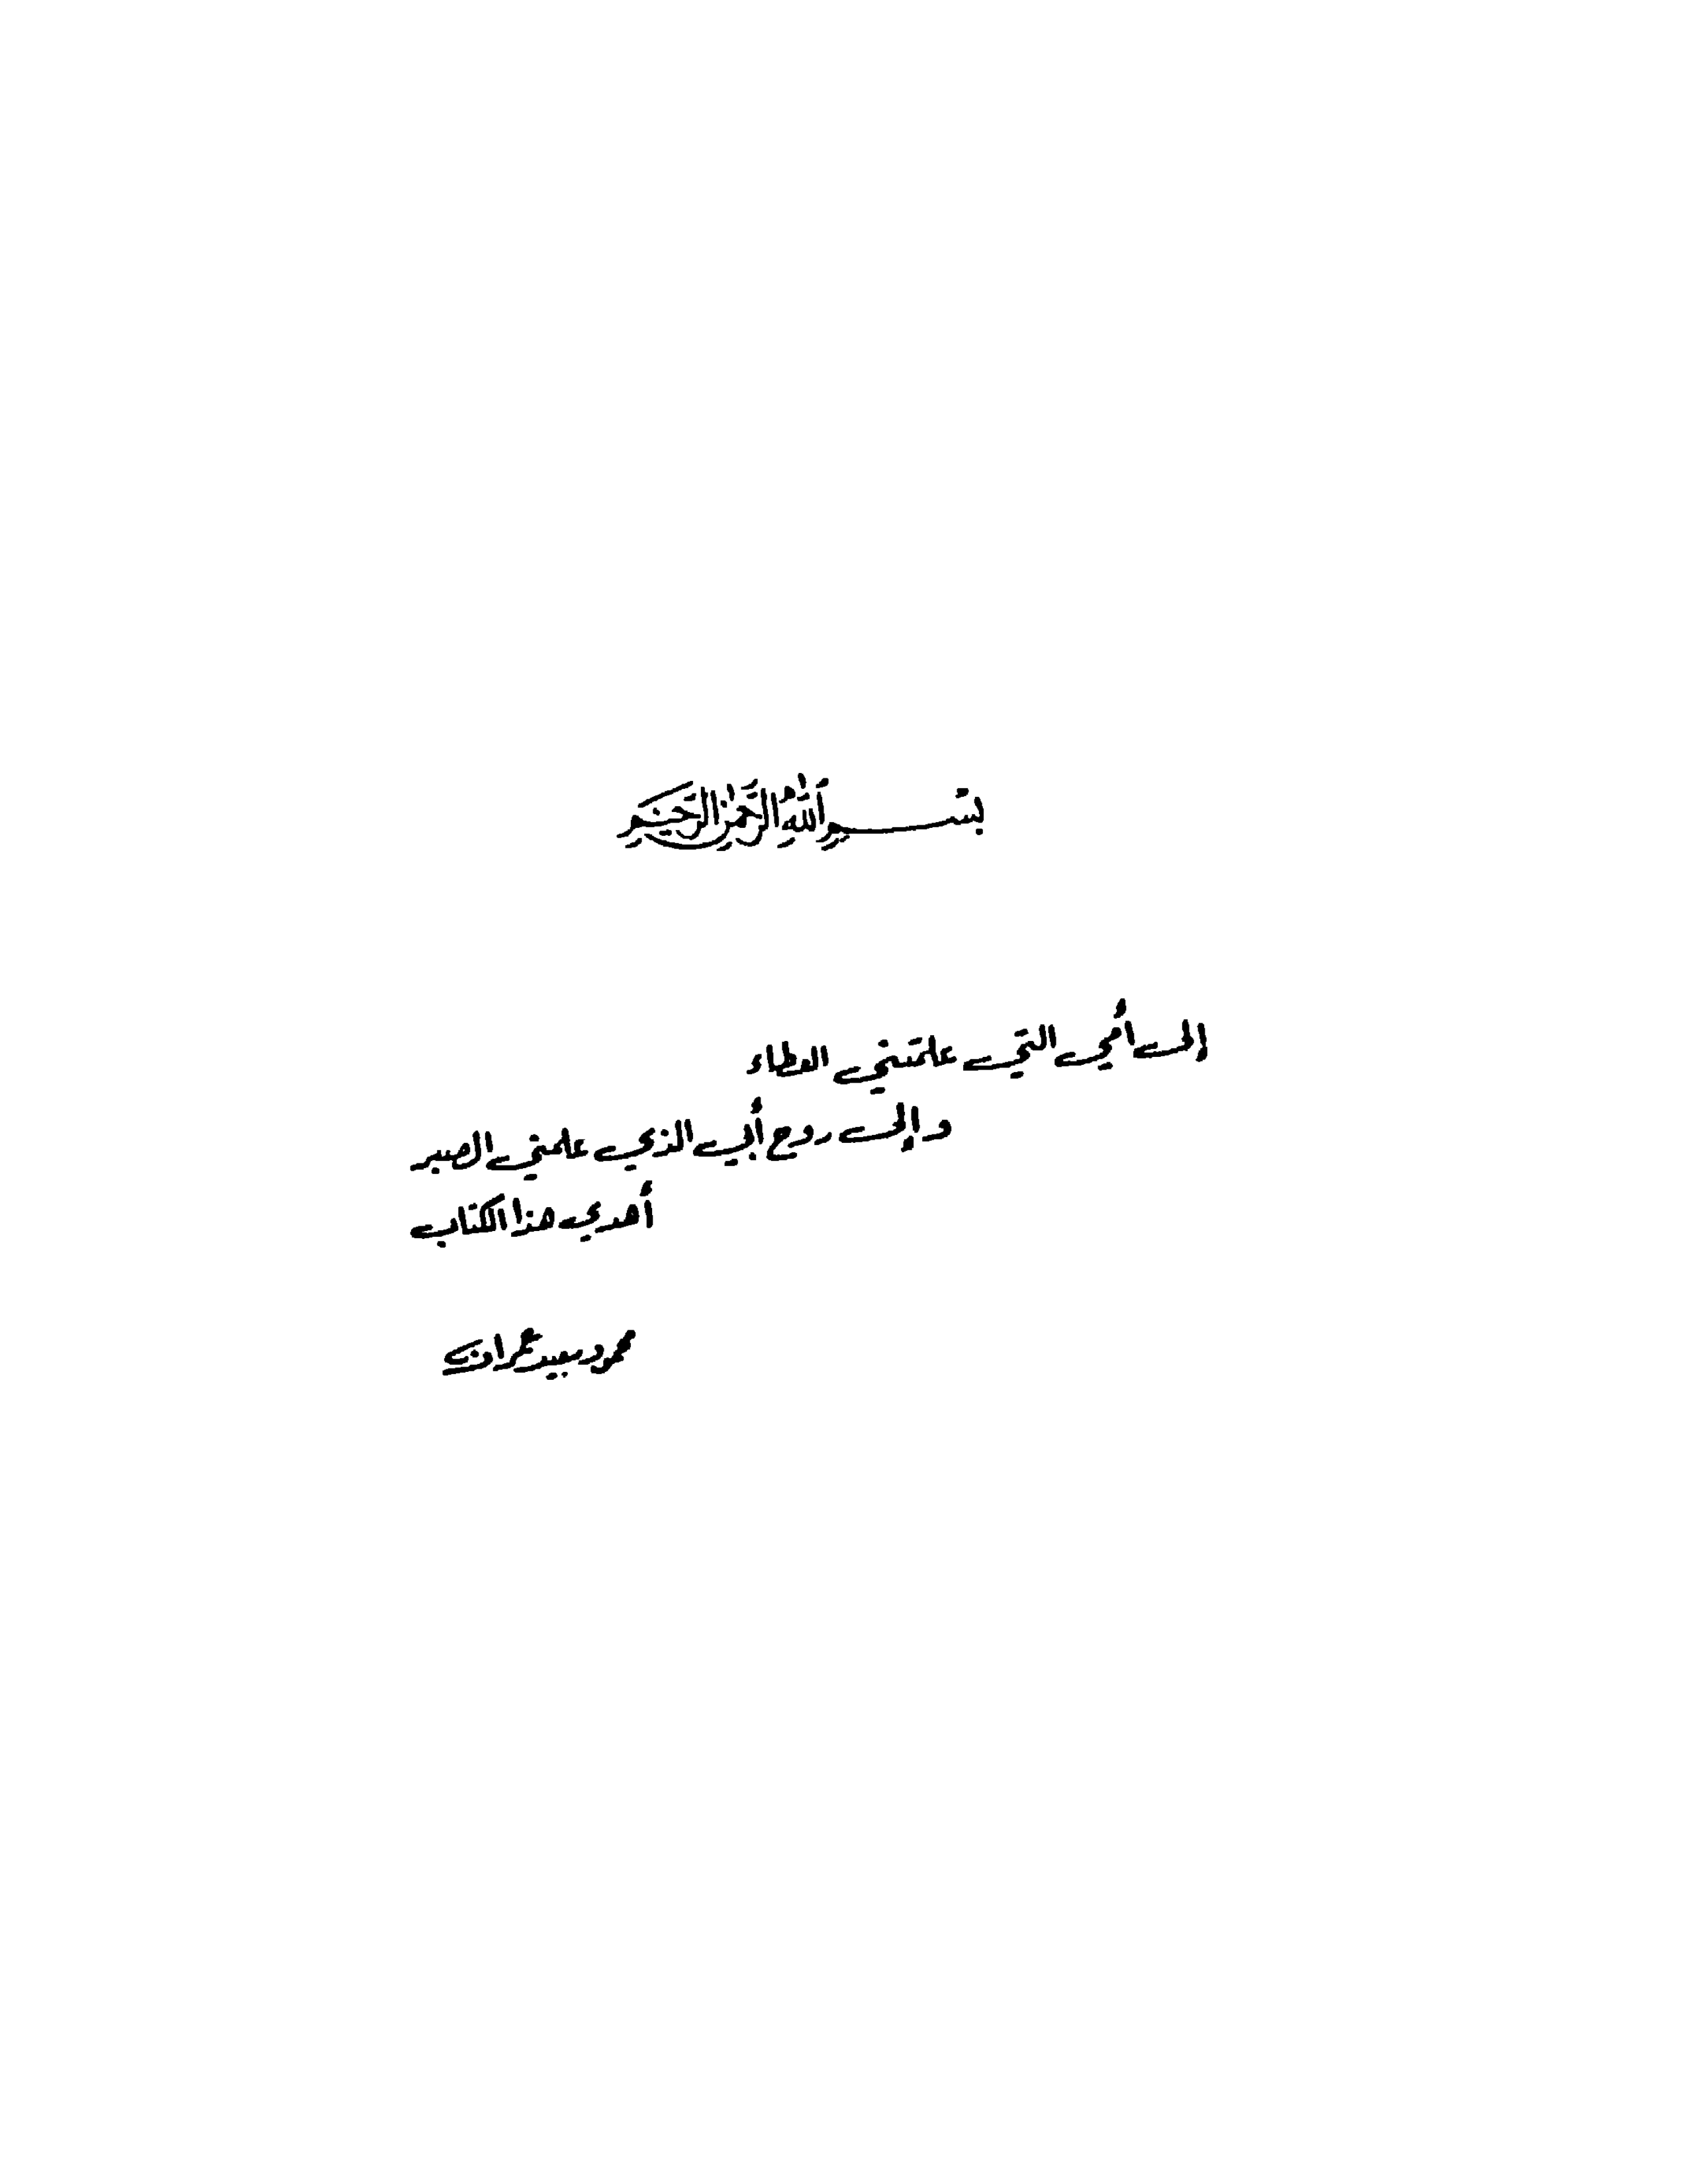 بسم الله الرحمن الرحيم
إلى أمي التي علمتني العطاء
وإلى روح أبي الذي علمني الصبر
أهدي هذا الكتاب
محمود سعيد عمران